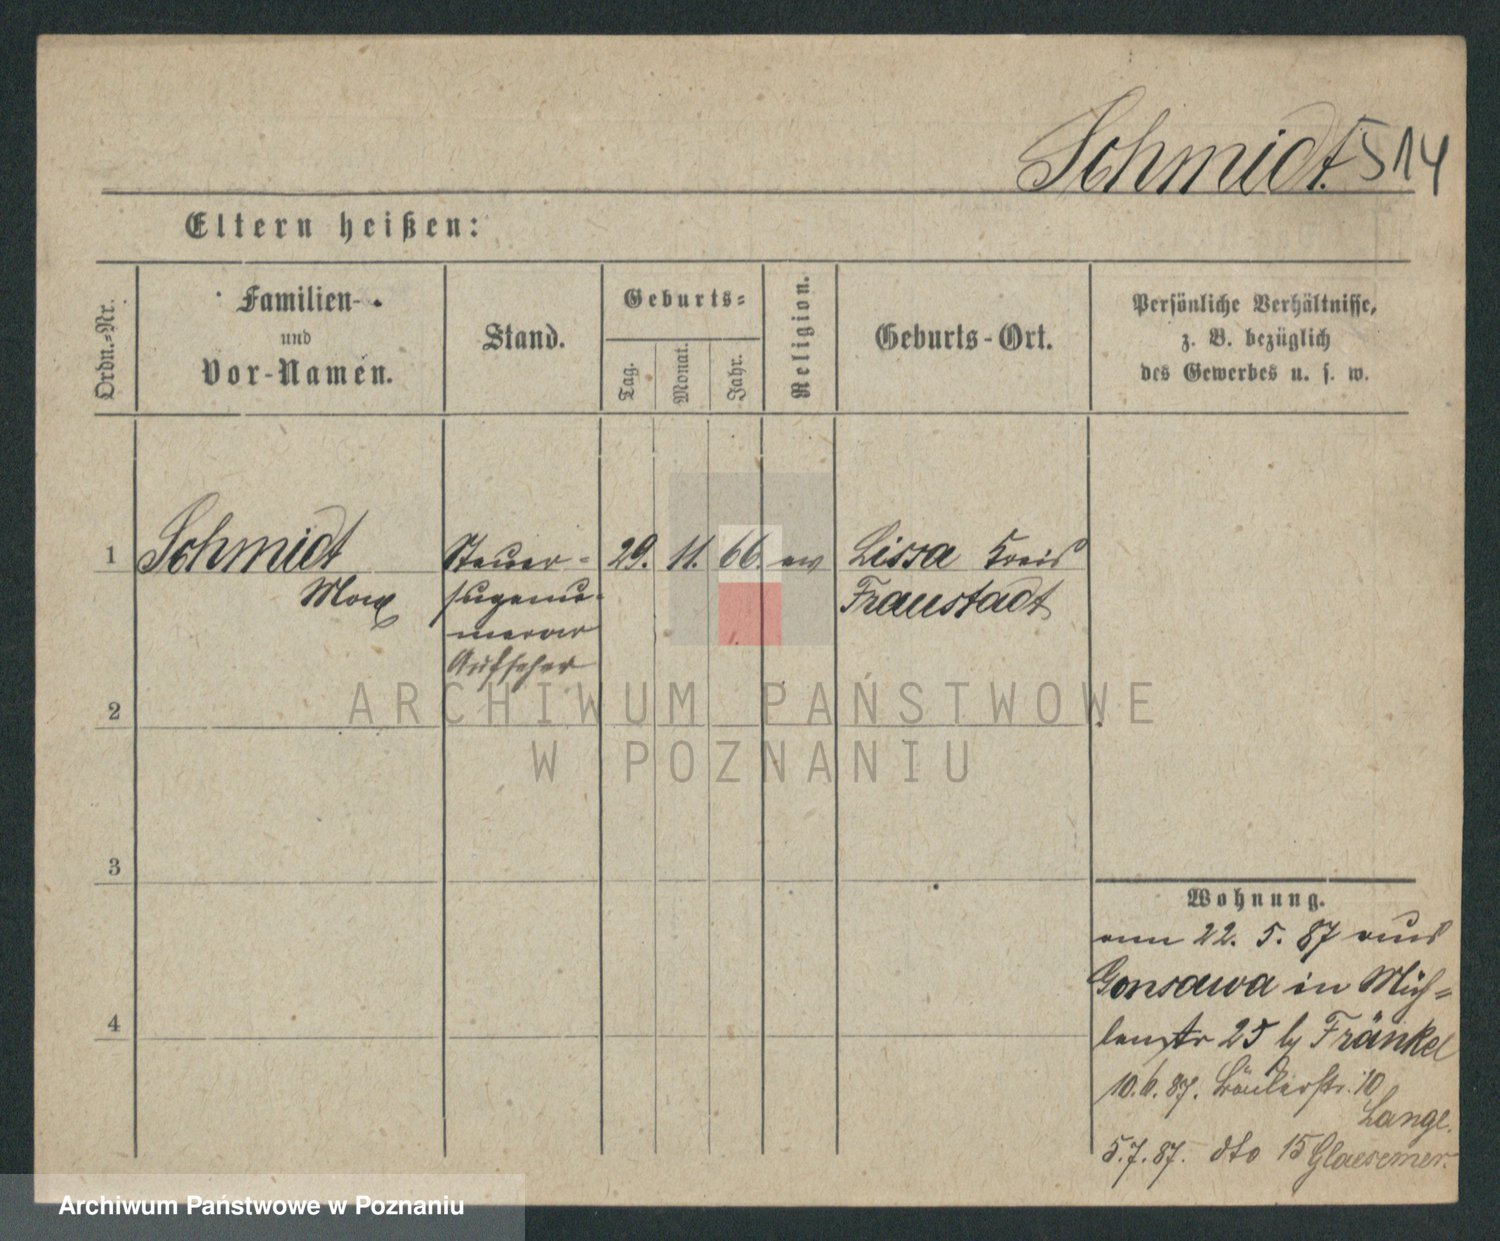 Schmidt. 514
Eltern heißen:
Ordn.-Nr.
Familien-
und
Vor-Namen.
Stand.
Geburts-
Tag.
Monat.
Jahr.
Religion.
Geburts-Ort.
Persönliche Verhältnisse,
z. B. bezüglich
des Gewerbes u. s. w.
1 Schmidt Steuer- 29. 11. 66. ev Lissa Kreis
Max Fraustadt
Aufseher
2
3
4
Wohnung.
am 22. 5. 87 aus
Gonsawa in Müh-
lenstr 25 by Fränkel
10.6.87. Bäckerstr. 10
Lange.
5.7.87. dto 15 Glaesemer.
ARCHIWUM PAŃSTWOWE
W POZNANIU
Archiwum Państwowe w Poznaniu